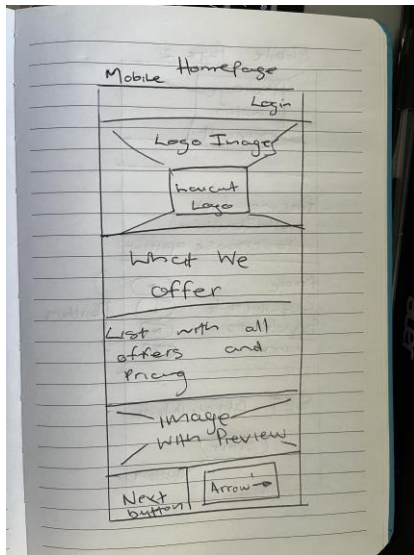 Mobile Homepage
Login
Logo Image
Logo
What We
offer
List with all
offers and
Pricing
Image
with Preview
Next
button
Arrow